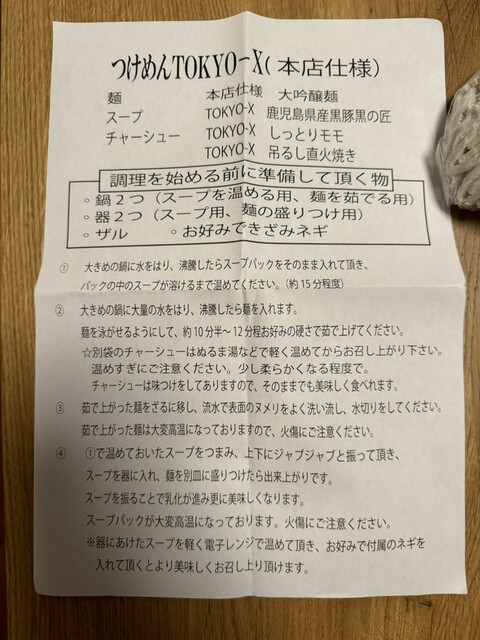 つけめんTOKYO-X(本店仕様)
麺 本店仕様 大吟醸麺
スープ TOKYO-X 鹿児島県産黒豚黒の匠
チャーシュー TOKYO-X しっとりモモ
TOKYO-X 吊るし直火焼き
調理を始める前に準備して頂く物
◦鍋２つ（スープを温める用、麺を茹でる用）
◦器２つ（スープ用、麺の盛りつけ用）
◦ザル ◦お好みできざみネギ
① 大きめの鍋に水をはり、沸騰したらスープパックをそのまま入れて頂き、
パックの中のスープが溶けるまで温めてください。（約15分程度）
② 大きめの鍋に大量の水をはり、沸騰したら麺を入れます。
麺を泳がせるようにして、約10分半～12分程お好みの硬さで茹で上げてください。
☆別袋のチャーシューはぬるま湯などで軽く温めてからお召し上がり下さい。
温めすぎにご注意ください。少し柔らかくなる程度で。
チャーシューは味つけをしてありますので、そのままでも美味しく食べれます。
③ 茹で上がった麺をざるに移し、流水で表面のヌメリをよく洗い流し、水切りをしてください。
茹で上がった麺は大変高温になっておりますので、火傷にご注意ください。
④ ①で温めておいたスープをつまみ、上下にジャブジャブと振って頂き、
スープを器に入れ、麺を別皿に盛りつけたら出来上がりです。
スープを振ることで乳化が進み更に美味しくなります。
スープパックが大変高温になっております。火傷にご注意ください。
※器にあけたスープを軽く電子レンジで温めて頂き、お好みで付属のネギを
入れて頂くとより美味しくお召し上り頂けます。